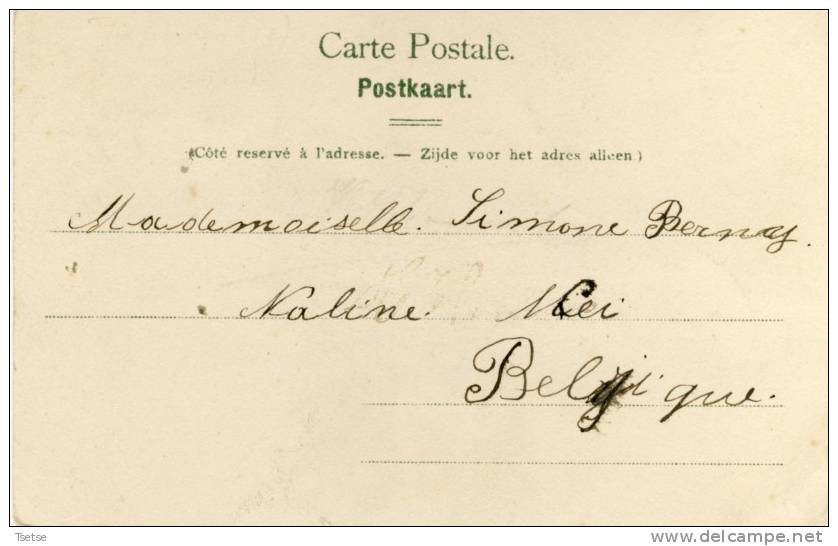 Carte Postale.
Postkaart.
(Côté reservé à l'adresse. — Zijde voor het adres alleen)
Mademoiselle. Simone Bernay.
Naline.
Belgique.
Tsetse
delcampe.net